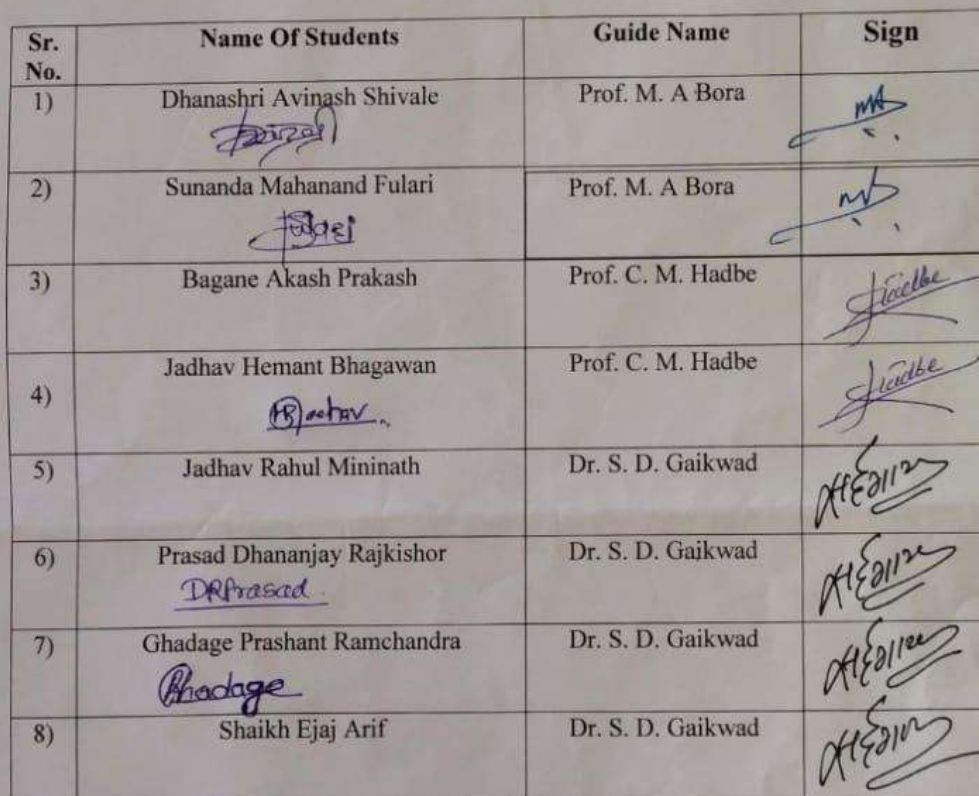 Sr. No. Name Of Students Guide Name Sign
1) Dhanashri Avinash Shivale Prof. M. A Bora
2) Sunanda Mahanand Fulari Prof. M. A Bora
3) Bagane Akash Prakash Prof. C. M. Hadbe
Hadbe
4) Jadhav Hemant Bhagawan Prof. C. M. Hadbe
Hadbe
5) Jadhav Rahul Mininath Dr. S. D. Gaikwad
6) Prasad Dhananjay Rajkishor Dr. S. D. Gaikwad
DRPrasad.
7) Ghadage Prashant Ramchandra Dr. S. D. Gaikwad
Ghadage
8) Shaikh Ejaj Arif Dr. S. D. Gaikwad